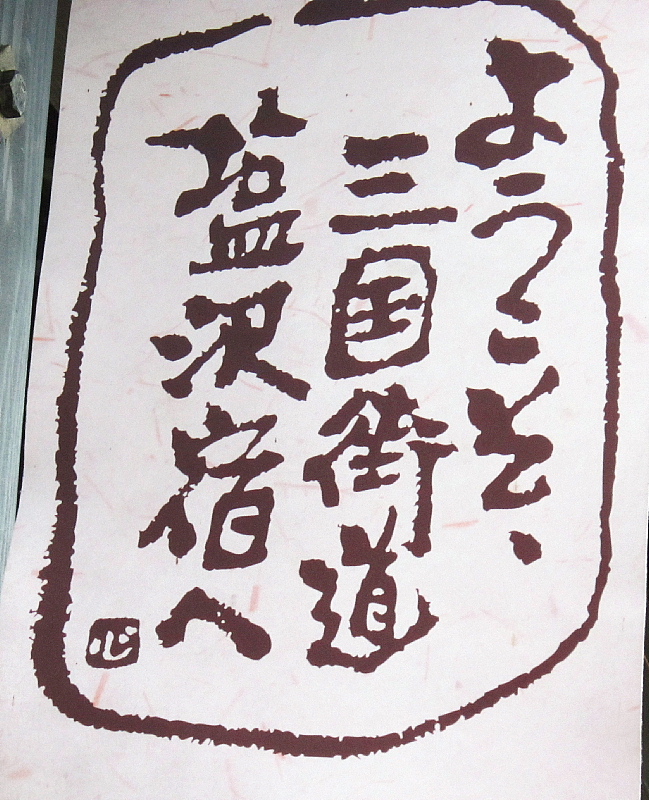 ようこそ、
三国街道
塩沢宿へ
心